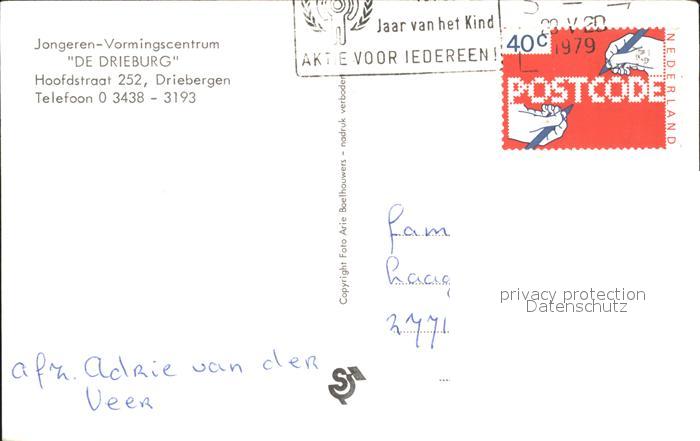 Jongeren-Vormingscentrum
"DE DRIEBURG"
Hoofdstraat 252, Driebergen
Telefoon 0 3438 - 3193
Jaar van het Kind
AKTIE VOOR IEDEREEN!
1979
40c
POSTCODE
NEDERLAND
Copyright Foto Arie Boelhouwers - nadruk verboden
fam
haag
2771
privacy protection
Datenschutz
afz. Adrie van der
Veer